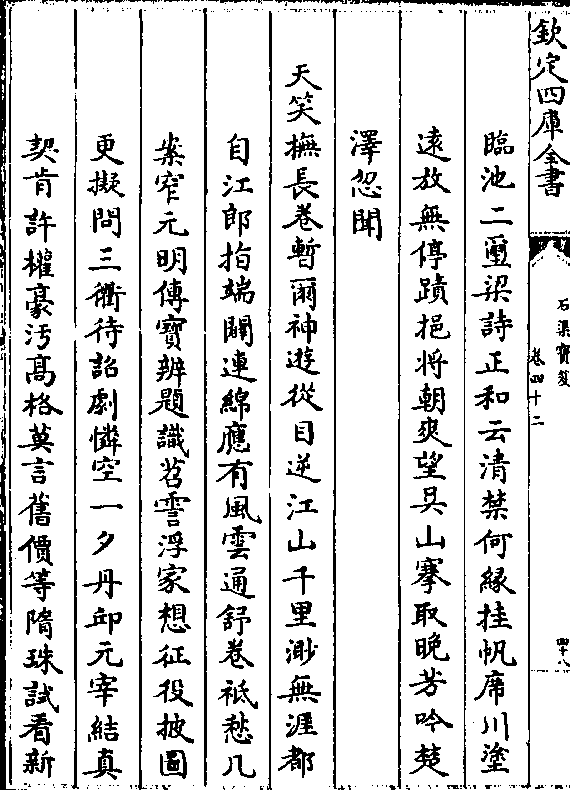 欽定四庫全書
石渠寶笈
卷四十二
四十八
臨池二璽梁詩正和云清禁何緣挂帆席川塗
遠放無停蹟挹將朝爽望吳山搴取晚芳吟楚
澤忽聞
天笑撫長卷暫爾神遊從目逆江山千里渺無涯都
自江郎指端闢連綿應有風雲通舒卷祗愁几
案窄元明傳寶辨題識苕霅浮家想征役披圖
更擬問三衢待詔劇憐空一夕丹邱元宰結真
契肯許權豪汚高格莫言舊價等隋珠試看新